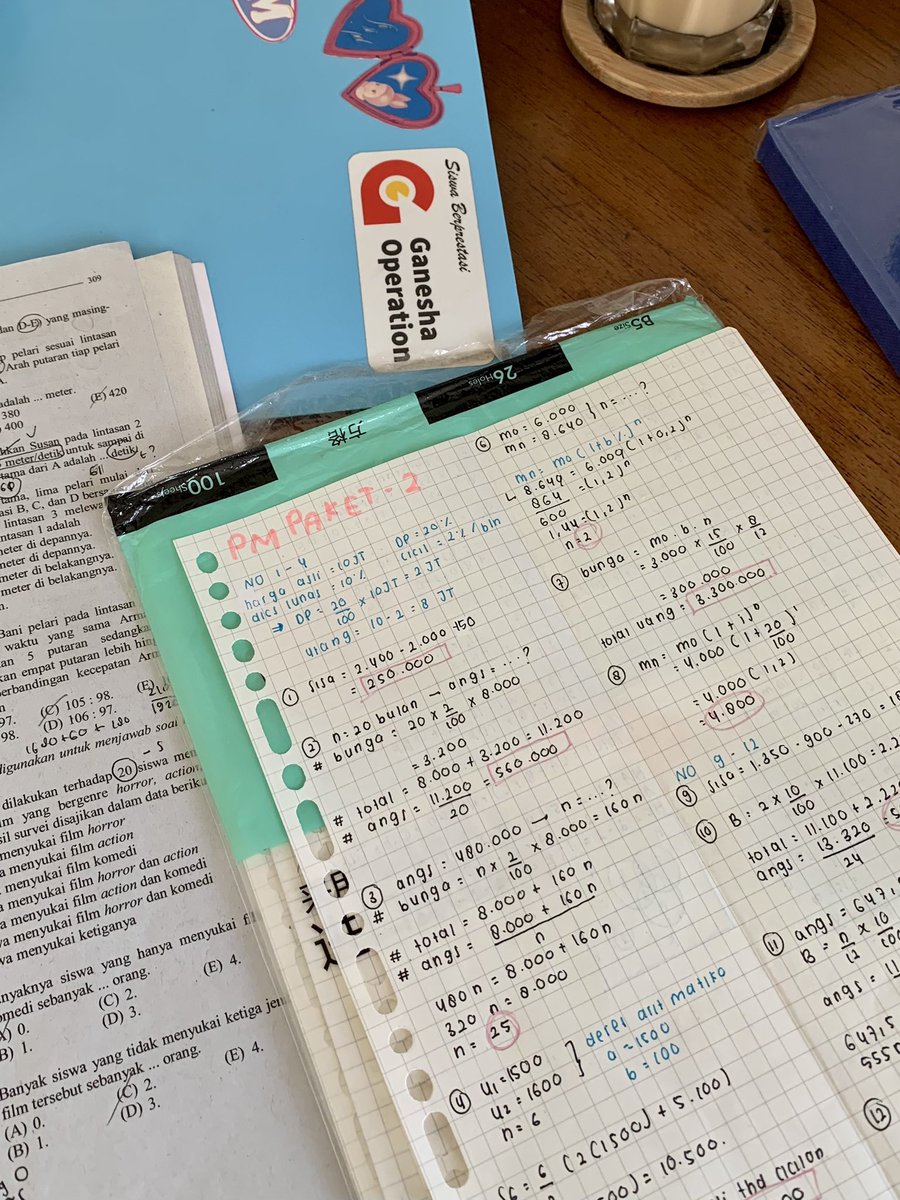 M
Siswa Berprestasi
Ganesha
Operation
B5 Size
26 Holes
方格
100 Sheets
309
dan (D-E) yang masing-
pelari sesuai lintasan
Arah putaran tiap pelari
A.
adalah ... meter.
380
(E) 420
400
Susan pada lintasan 2
meter/detik untuk sampai di
tama dari A adalah ... detik
61
60
tama, lima pelari mulai
asi B, C, dan D bersa
lintasan 3 melewa
intasan 1 adalah
meter di depannya.
meter di depannya.
meter di belakangnya.
meter di belakangnya.
Bani pelari pada lintasan
waktu yang sama Arm
kan 5 putaran sedangka
kan empat putaran lebih
perbandingan kecepatan Arm
97.
(C) 105 : 98.
(E)
98.
(D) 106 : 97.
digunakan untuk menjawab soal
dilakukan terhadap 20 siswa
yang bergenre horror, action
sil survei disajikan dalam data berik
menyukai film horror
a menyukai film action
menyukai film komedi
a menyukai film horror dan action
a menyukai film action dan komedi
va menyukai film horror dan komedi
wa menyukai ketiganya
anyaknya siswa yang hanya menyukai
omedi sebanyak ... orang.
(A) 0.
(C) 2.
(E) 4.
(B) 1.
(D) 3.
Banyak siswa yang tidak menyukai ketiga
film tersebut sebanyak ... orang.
(A) 0.
(C) 2.
(E) 4.
(B) 1.
(D) 3.
PM PAKET - 2
NO 1 - 4
harga asli = 10 JT DP = 20%
disc lunas = 10% cicil = 2% / bln
⇒ DP = 20/100 × 10 JT = 2 JT
utang = 10 - 2 = 8 JT
① sisa = 2.400 - 2.000 - 150
= 250.000
② n = 20 bulan → angs = ... ?
# bunga = 20 × 2/100 × 8.000
= 3.200
# total = 8.000 + 3.200 = 11.200
# angs = 11.200/20 = 560.000
③ angs = 480.000 → n = ... ?
# bunga = n × 2/100 × 8.000 = 160 n
# total = 8.000 + 160 n
# angs = 8.000 + 160 n / n
480 n = 8.000 + 160 n
320 n = 8.000
n = 25
④ u1 = 1500
u2 = 1600
n = 6
deret aritmatika
a = 1500
b = 100
S6 = 6/ (2(1500) + 5.100)
) = 10.500.
⑥ mo = 6.000
mn = 8.640 } n = ... ?
mn = mo (1 + b%)ⁿ
↳ 8.640 = 6.000 (1 + 0,2)ⁿ
864/600 = (1,2)ⁿ
1,44 = (1,2)ⁿ
n = 2
⑦ bunga = mo . b . n
= 3.000 × 15/100 × 8/12
= 300.000
total uang = 3.300.000
⑧ mn = mo (1 + i)ⁿ
= 4.000 (1 + 20/100)¹
= 4.000 (1,2)
= 4.800
NO 9 - 12
⑨ sisa = 1.350 - 900 - 270 =
⑩ B = 2 × 10/100 × 11.100 = 2.2
total = 11.100 + 2.220
angs = 13.320/24
⑪ angs = 647,5
B = n/12 × 10/100
angs =
647,5
555n
⑫